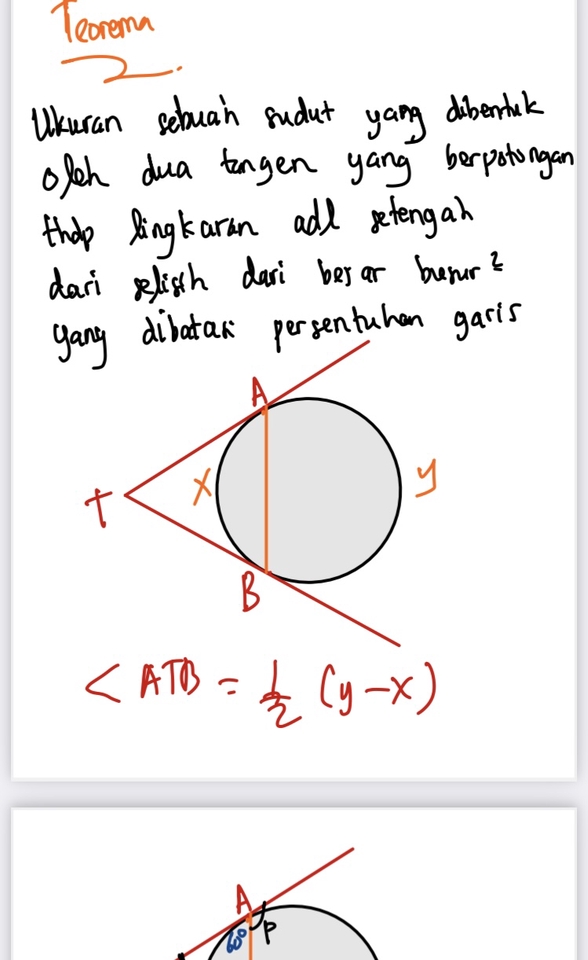 Teorema
2.
Ukuran sebuah sudut yang dibentuk
oleh dua tangen yang berpotongan
thdp lingkaran adl setengah
dari selisih dari besar busur²
yang dibatasi persentuhan garis
A
X
y
T
B
< ATB = 1/2 (y-x)
A
P